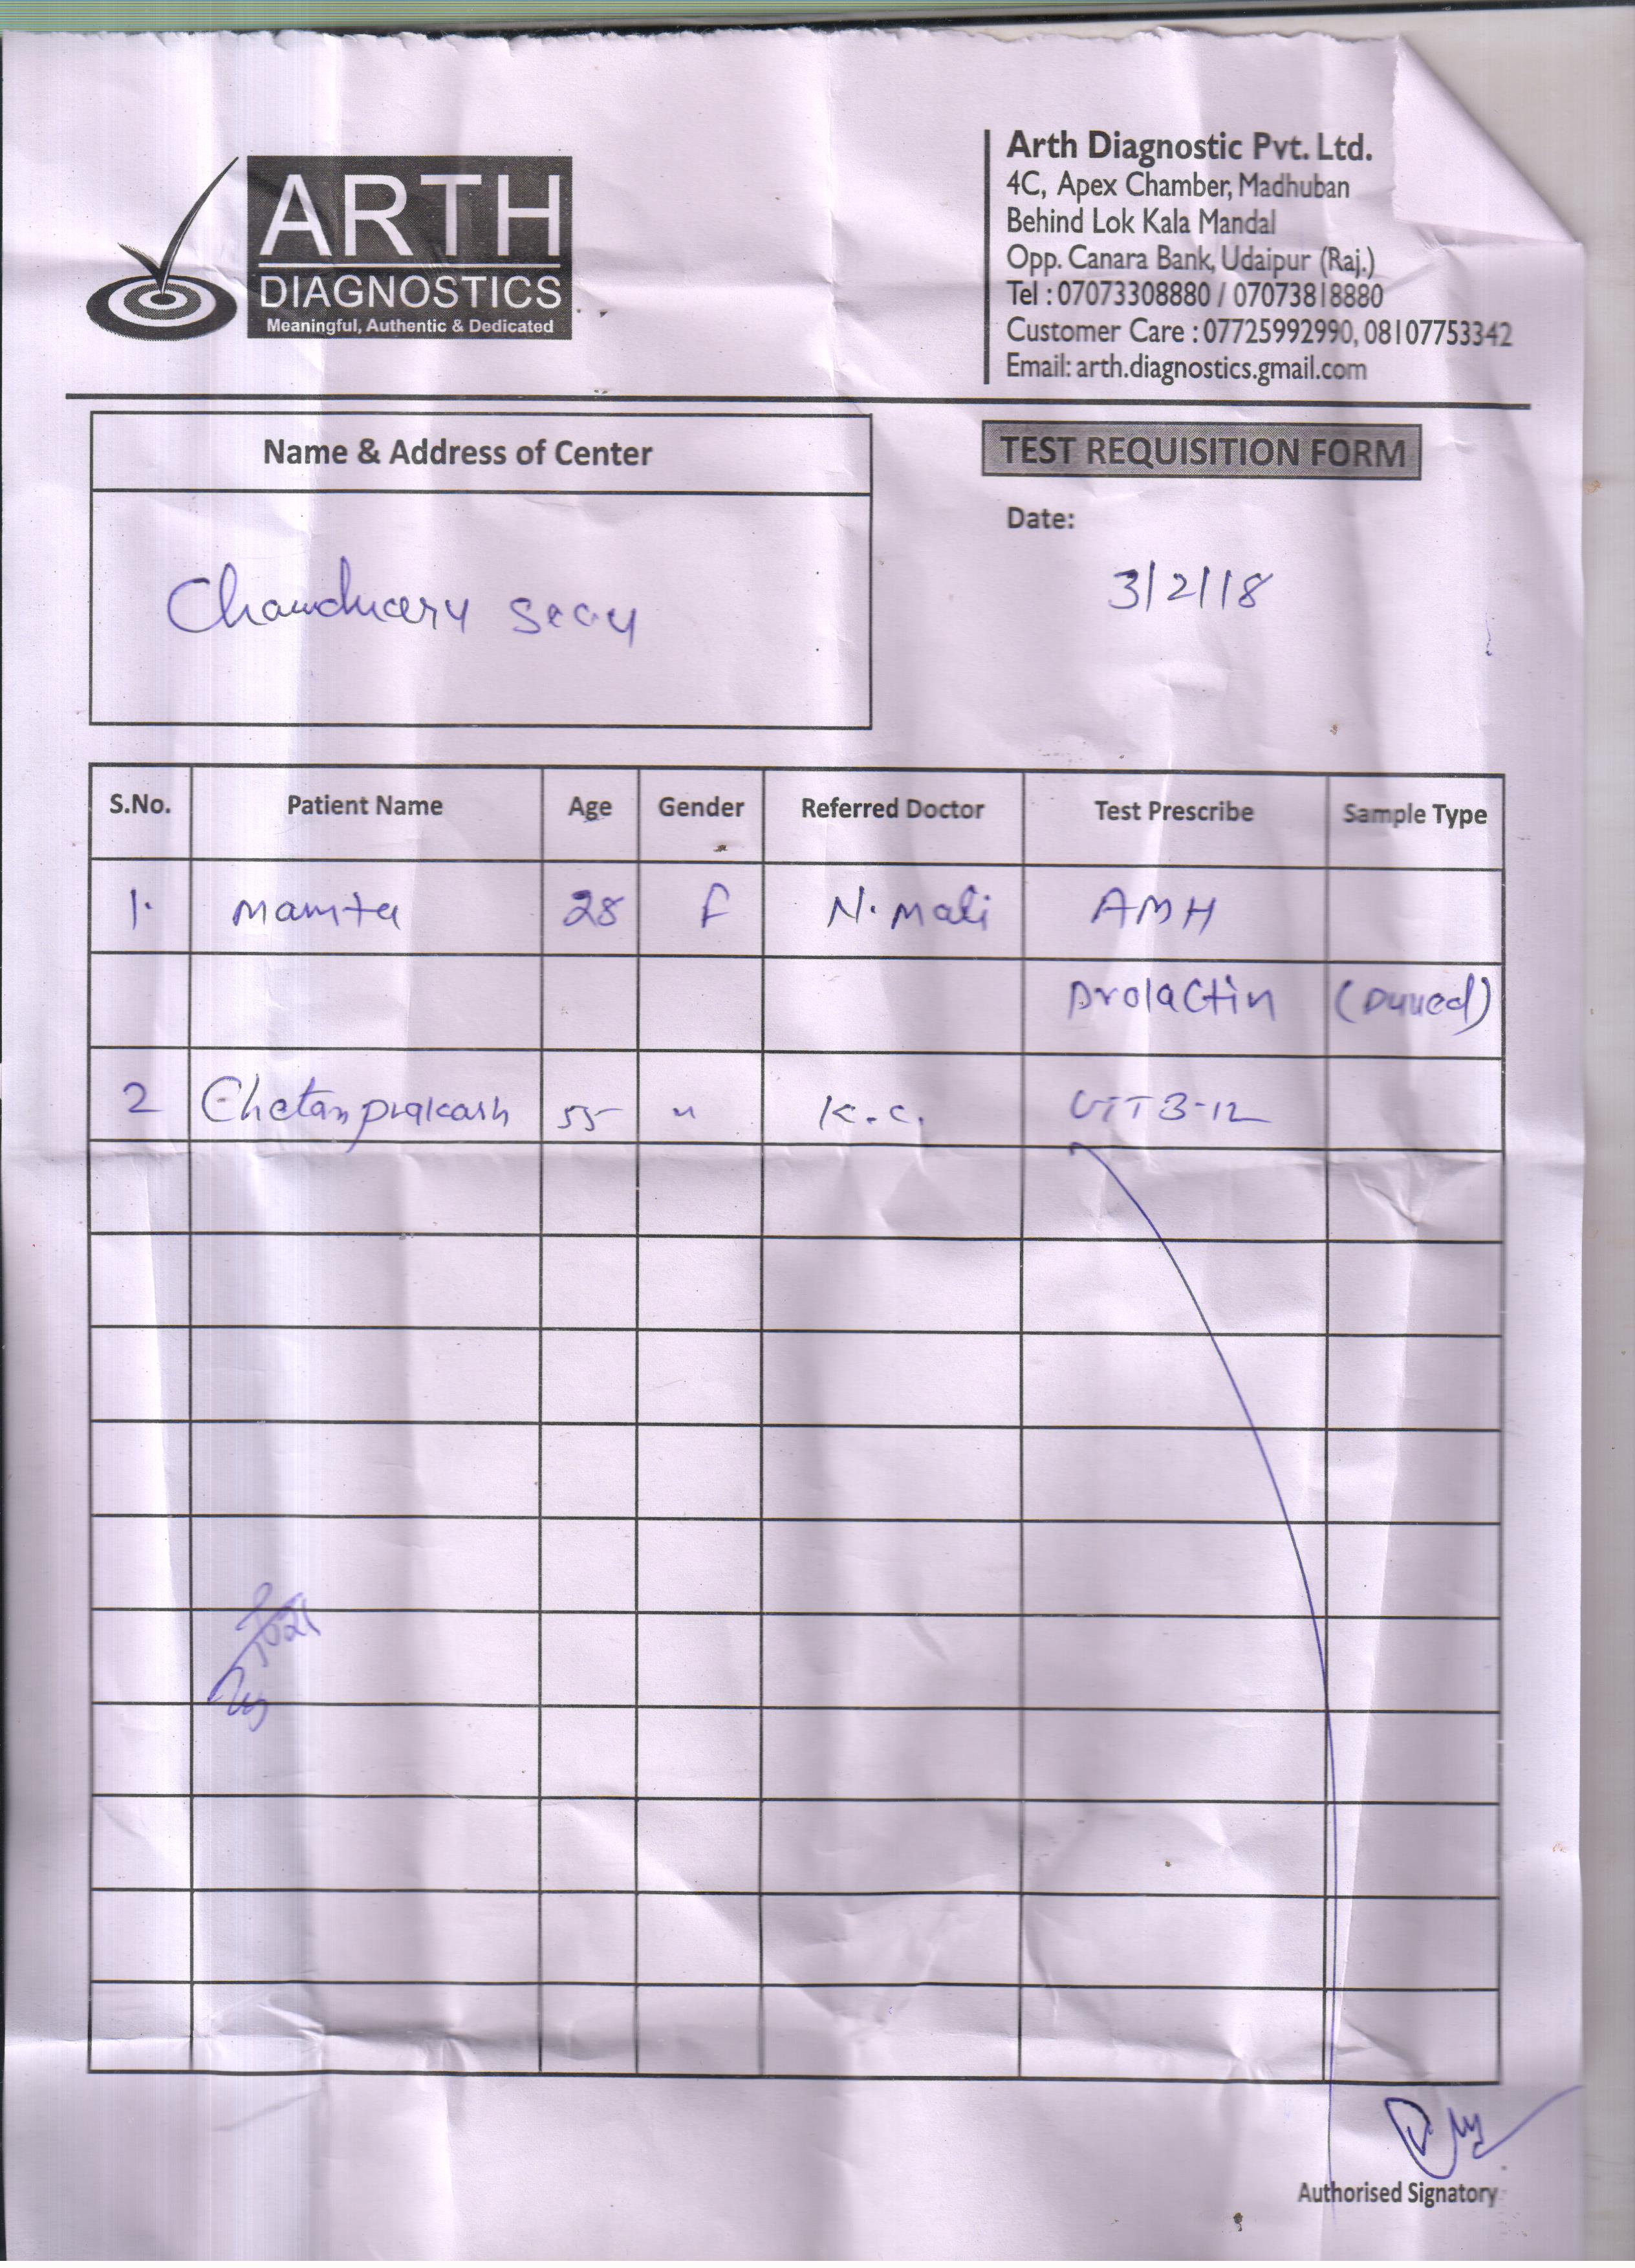 ARTH
DIAGNOSTICS
Meaningful, Authentic & Dedicated
Arth Diagnostic Pvt. Ltd.
4C, Apex Chamber, Madhuban
Behind Lok Kala Mandal
Opp. Canara Bank, Udaipur (Raj.)
Tel : 07073308880 / 07073818880
Customer Care : 07725992990, 08107753342
Email: arth.diagnostics.gmail.com
Name & Address of Center
TEST REQUISITION FORM
Date:
3/2/18
S.No. Patient Name Age Gender Referred Doctor Test Prescribe Sample Type
1. Mamta 28 F N. Mali AMH
Prolactin
2 Chetan prakash 55 " K.C. VIT B-12
Authorised Signatory